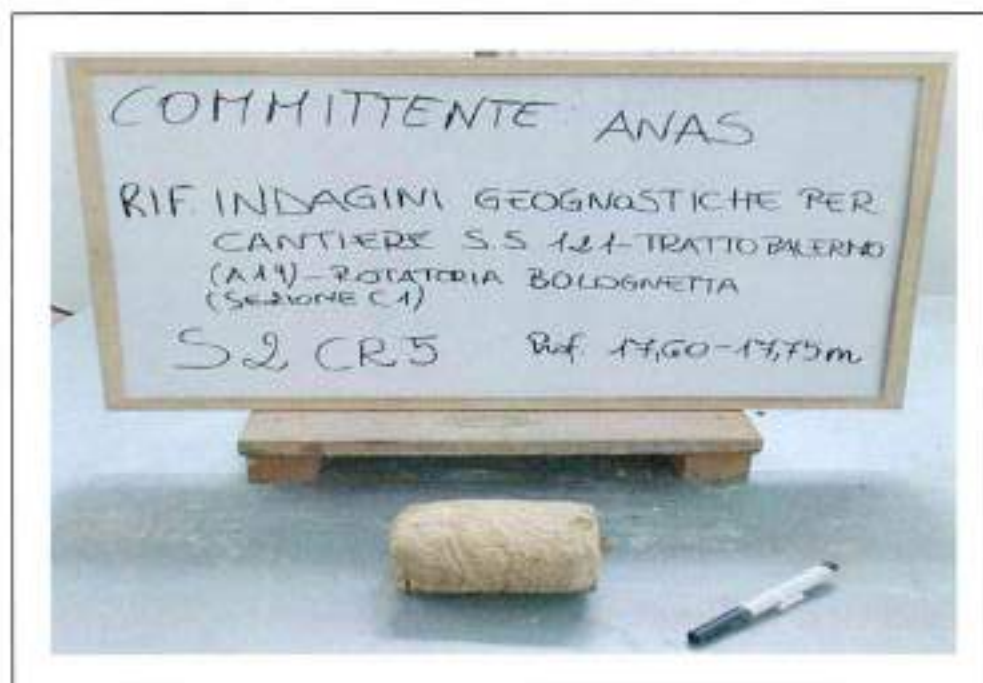 COMMITTENTE ANAS
RIF. INDAGINI GEOGNOSTICHE PER
CANTIERE S.S 121-TRATTO PALERMO
(A19)-ROTATORIA BOLOGNETTA
(SEZIONE C1)
S2 CR5 Prof. 17,60-17,75m